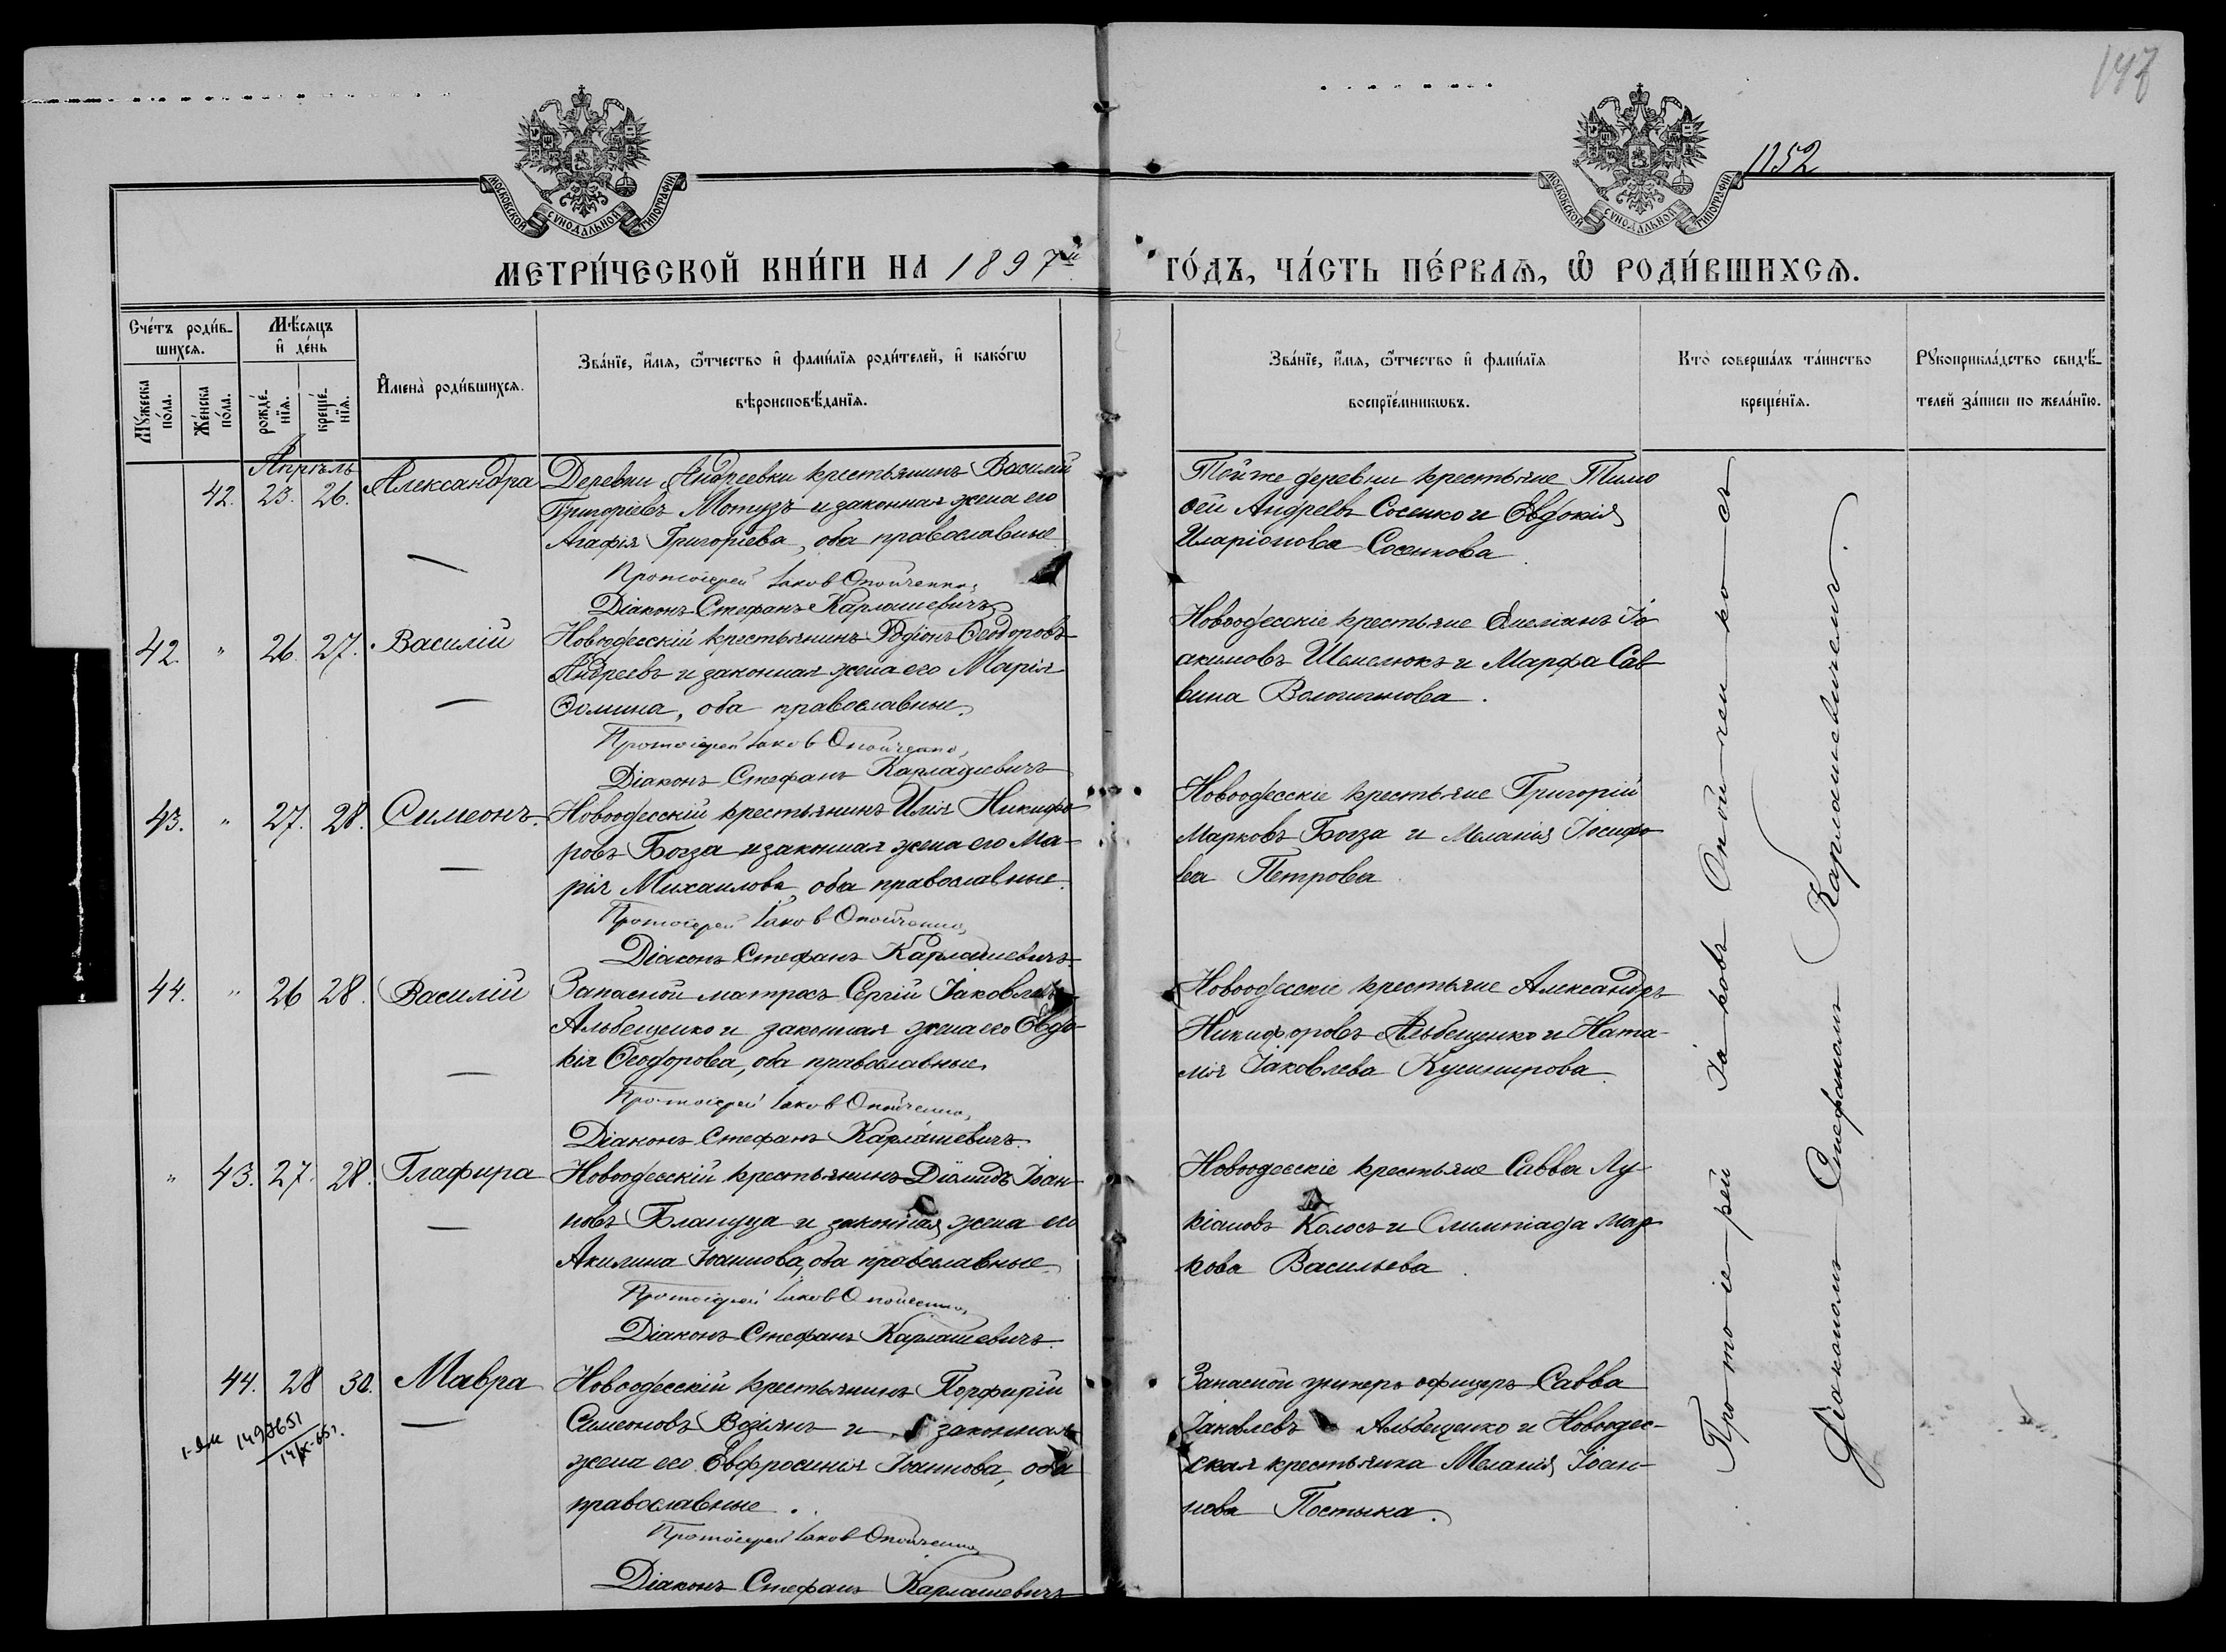 147
1152
МОСКОВСКОЙ СѴНОДАЛЬНОЙ ТИПОГРАФІИ
МОСКОВСКОЙ СѴНОДАЛЬНОЙ ТИПОГРАФІИ
МЕТРИ́ЧЕСКОЙ КНИ́ГИ НА 1897й ГО́ДЪ, ЧА́СТЬ ПЕ́РВАѦ, Ѽ РОДИ́ВШИХСѦ.
Сче́тъ роди́в-
шихсѧ.
Мꙋ́жеска по́ла.
Же́нска по́ла.
Мѣ́сѧцъ и҆ де́нь
рожде́-
нїѧ.
креще́-
нїѧ.
И҆мена̀ роди́вшихсѧ.
Зва́нїе, и҆́мѧ, ѻ҆́тчество и҆ фами́лїѧ роди́телей, и҆ како́гѡ
вѣроисповѣ́данїѧ.
Зва́нїе, и҆́мѧ, ѻ҆́тчество и҆ фами́лїѧ
воспрїе́мникѡвъ.
Кто̀ соверша́лъ та́инство
креще́нїѧ.
Рꙋкоприкла́дство свидѣ́-
телей за́писи по жела́нїю.
Апрѣль
42. 23. 26. Александра
Деревни Андреевки крестьянинъ Василій
Григоріевъ Мотузъ и законная жена его
Агафія Григоріева, оба православные
Протоіерей Іаков Опойченко,
Діаконъ Стефанъ Карлашевичъ
Той же деревни крестьяне Тимо
ѳей Андреевъ Сосенко и Евдокія
Иларіонова Сосенкова.
42. " 26. 27. Василій
Новоодесскій крестьянинъ Родіонъ Ѳеодоровъ
Андреевъ и законная жена его Марія
Ѳомина, оба православные.
Протоіерей Іаков Опойченко,
Діаконъ Стефанъ Карлашевичъ
Новоодесскіе крестьяне Емеліанъ Іо
акимовъ Шемелюкъ и Марфа Сав
вина
43. " 27. 28. Симеонъ.
Новоодесскій крестьянинъ Илія Никифо
ровъ Богза и законная жена его Ма-
рія Михаилова, оба православные.
Протоіерей Іаков Опойченко,
Діаконъ Стефанъ Карлашевичъ.
Новоодесскіе крестьяне Григорій
Марковъ Богза и Меланія Іосифо
ва Петрова
44. " 26 28. Василій
Запасной матросъ Сергій Іаковлевъ
Альбещенко и законная жена его Евдо-
кія Ѳеодорова, оба православные.
Протоіерей Іаков Опойченко,
Діаконъ Стефанъ Карлашевичъ.
Новоодесскіе крестьяне Александръ
Никифоровъ Альбещенко и Ната-
лія Іаковлева Кушнирова.
" 43. 27. 28. Глафира
Новоодесскій крестьянинъ Діомидъ Іоан-
новъ Бландуца и законная жена его
Акилина Іоаннова, оба православные.
Протоіерей Іаков Опойченко,
Діаконъ Стефанъ Карлашевичъ.
Новоодесскіе крестьяне Савва Лу-
кіановъ Колосъ и Олимпіада Мар
кова Васильева.
44. 28 30. Мавра
1497651
14/X-65г.
Новоодесскій крестьянинъ Порфирій
Симеоновъ Водіянъ и законная
жена его Евфросинія Іоаннова, оба
православные.
Протоіерей Іаков Опойченко,
Діаконъ Стефанъ Карлашевичъ
Запасной унтеръ офицеръ Савва
Іаковлевъ Альбещенко и Новоодес-
ская крестьянка Меланія Іоан-
нова Постыка.
Протоіерей Іаковъ Опойченко съ
Діакономъ Стефаномъ Карлашевичемъ.